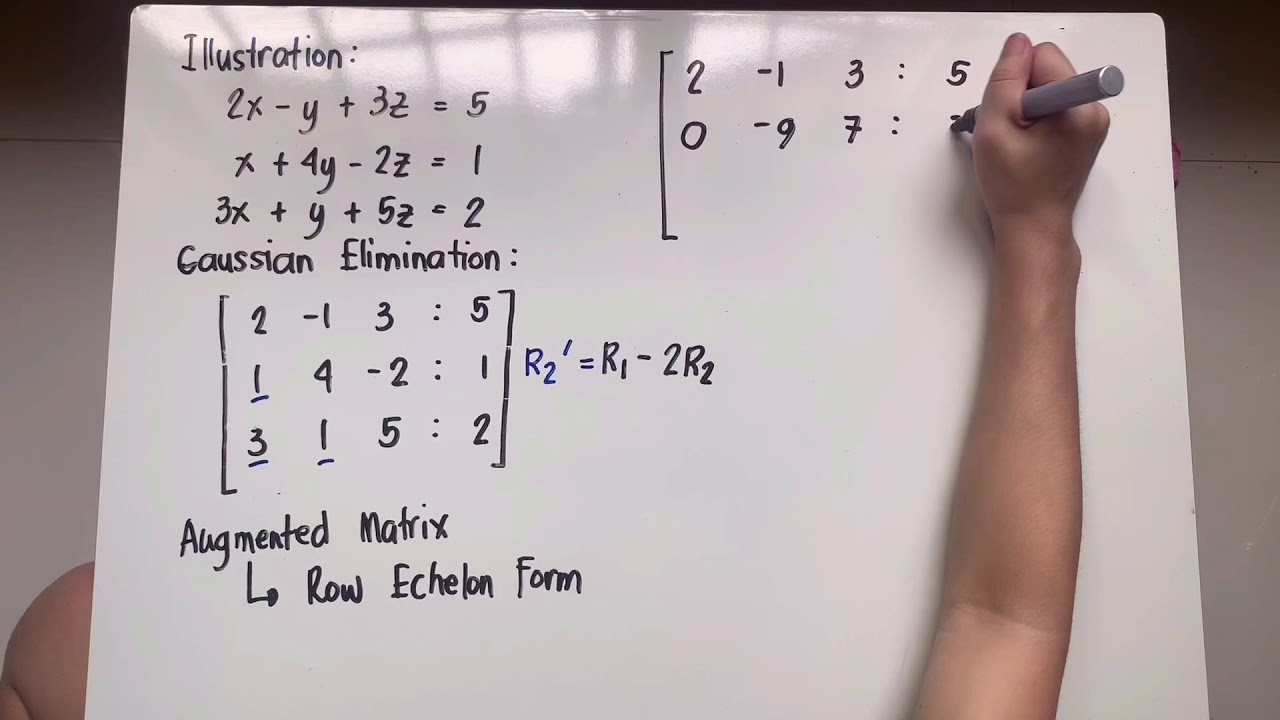 Illustration:
2x - y + 3z = 5
x + 4y - 2z = 1
3x + y + 5z = 2
Gaussian Elimination:
2 -1 3 : 5
1 4 -2 : 1 R₂' = R₁ - 2R₂
3 1 5 : 2
Augmented Matrix
↳ Row Echelon Form
2 -1 3 : 5
0 -9 7 :